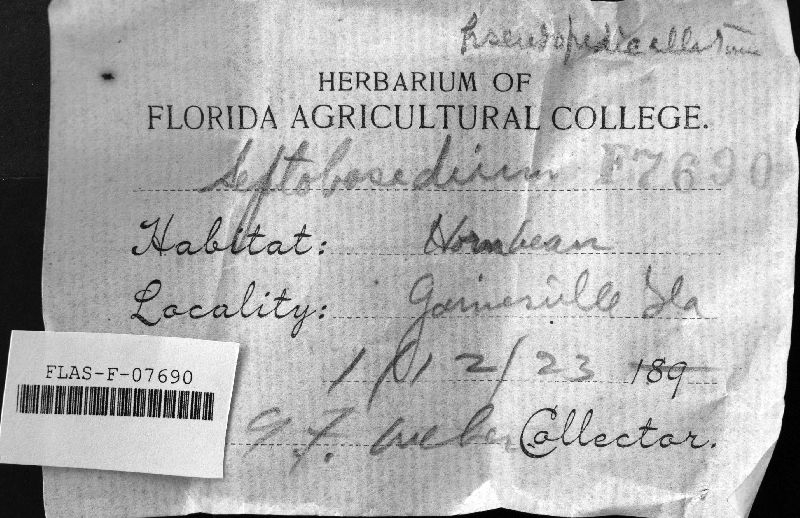 pseudopedicellatum
HERBARIUM OF
FLORIDA AGRICULTURAL COLLEGE.
Septobasidium F7690
Habitat: Hornbean
Locality: Gainesville Fla
1/12/23 189
G. F. Weber Collector.
FLAS-F-07690